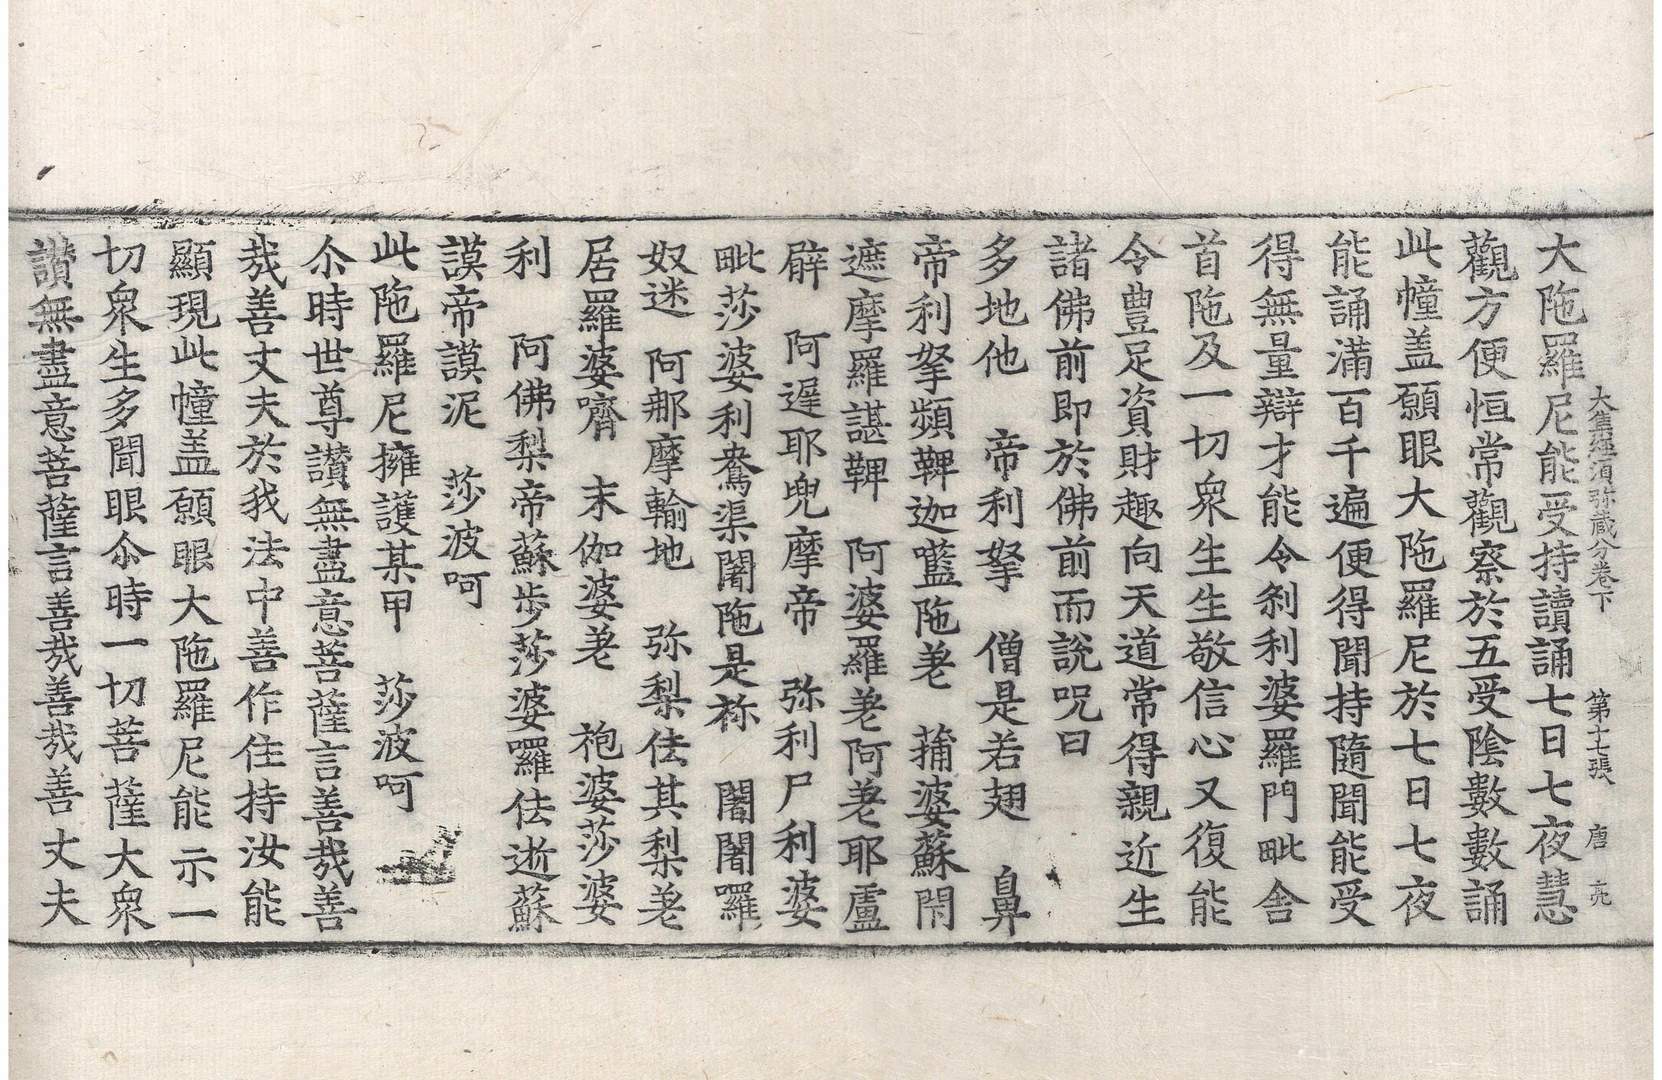 大集經須弥藏分卷下 第十七張 唐 亮
大陁羅尼能受持讀誦七日七夜慧
觀方便恒常觀察於五受陰數數誦
此幢盖願眼大陁羅尼於七日七夜
能誦滿百千遍便得聞持隨聞能受
得無量辯才能令刹利婆羅門毗舍
首陁及一切衆生生敬信心又復能
令豊足資財趣向天道常得親近生
諸佛前即於佛前而說呪曰
多地他 帝利拏 僧是若翅 鼻
帝利拏頻鞞迦嚂陁㝹 蒱婆蘇閇
遮摩羅諶鞞 阿婆羅㝹阿㝹耶盧
辟 阿遲耶兜摩帝 弥利尸利婆
毗莎婆利鴦渠闍陁是袮 闍闍囉
奴迷 阿那摩輸地 弥梨佉其梨㝹
居羅婆嚌 末伽婆㝹 袍婆莎婆
利 阿佛梨帝蘇步莎婆囉佉逝蘇
謨帝謨泥 莎波呵
此陁羅尼擁護某甲 莎波呵
尒時世尊讃無盡意菩薩言善哉善
哉善丈夫於我法中善作住持汝能
顯現此幢盖願眼大陁羅尼能示一
切衆生多聞眼尒時一切菩薩大衆
讃無盡意菩薩言善哉善哉善丈夫